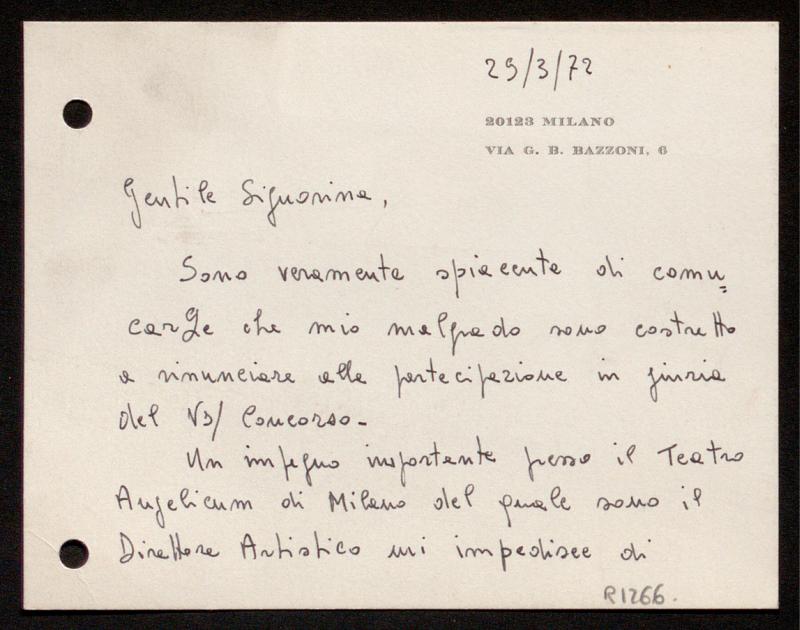 29/3/72
20123 MILANO
VIA G. B. BAZZONI, 6
Gentile Signorina,
Sono veramente spiacente di comu=
carLe che mio malgrado sono costretto
a rinunciare alla partecipazione in giuria
del Vs/ Concorso-
Un impegno importante presso il Teatro
Angelicum di Milano del quale sono il
Direttore Artistico mi impedisce di
R1266.